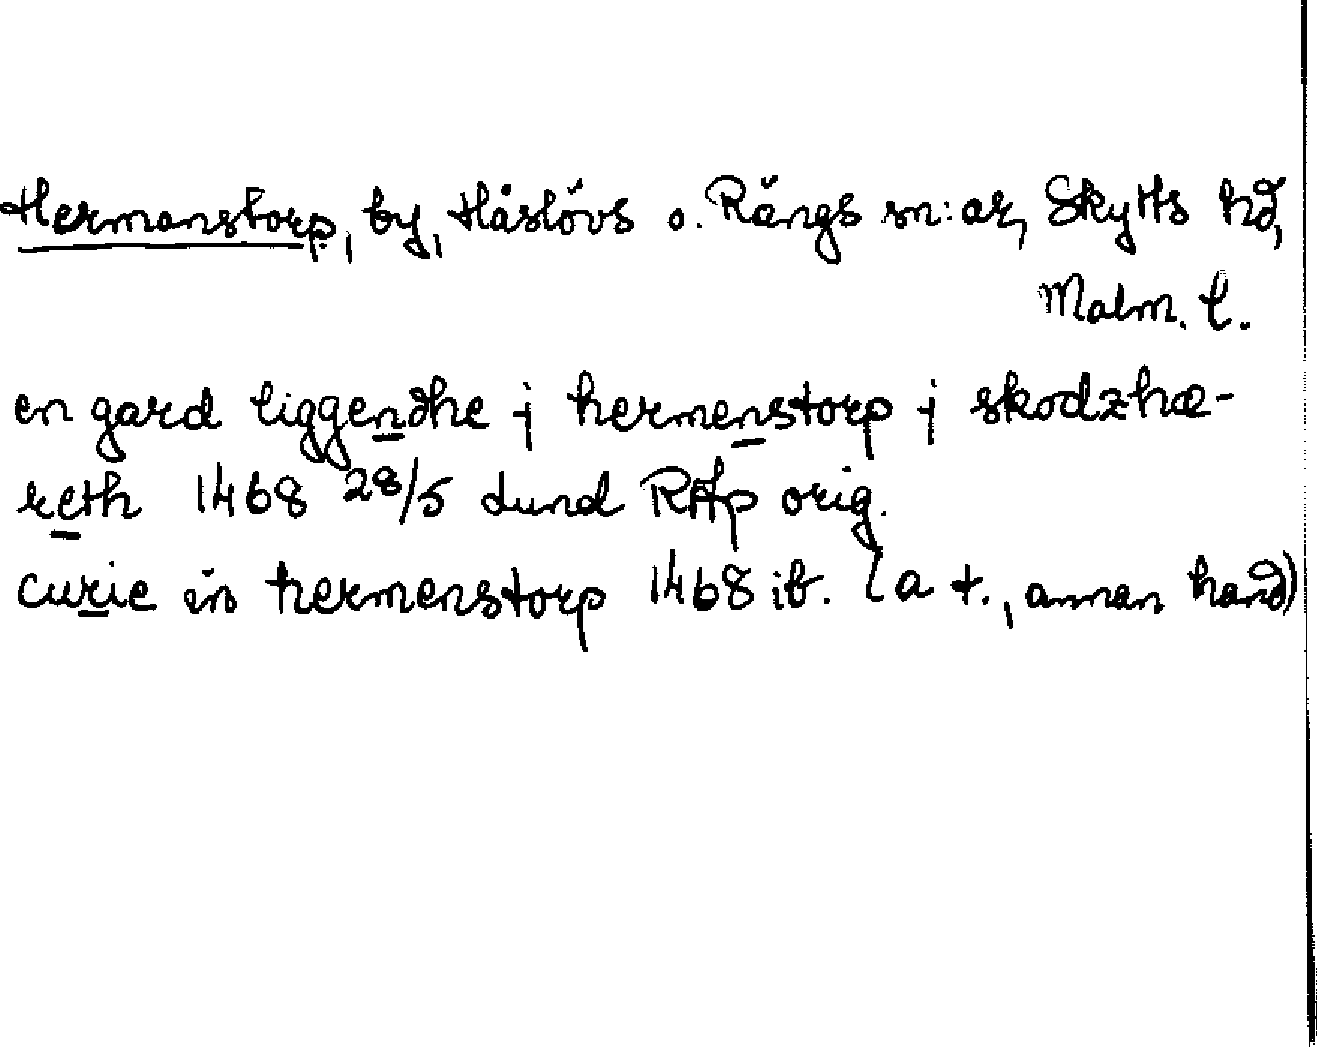 Hermanstorp, by, Håslövs o. Rängs sn:ar, Skytts hd,
Malm. l.
en gard liggendhe j hermenstorp j skodzhæ-
reth 1468 28/5 Lund RAp orig.
curie in hermenstorp 1468 ib. (a t., annan hand)